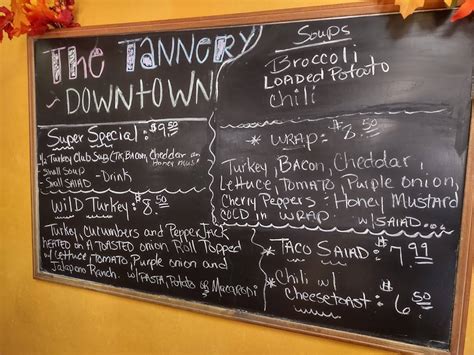 The Tannery
~ DOWNTOWN
Super Special: $9.50
1/2 Turkey Club Sug (TK, Bacon, Cheddar
Honey Mus
- Small Soup
- Small SALAD - Drink
Wild Turkey: $8.50
Turkey, Cucumbers and PepperJack
HEATED on A TOASTED onion Roll Topped
w/ Lettuce TOMATO Purple onion and
Jalapano Ranch. w/ PASTA, Potato or Macaroni
Soups
Broccoli
LOADED Potato
Chili
* WRAP: $8.50
Turkey, BACON, Cheddar,
Lettuce, TOMATO, Purple onion,
Cherry Peppers - Honey Mustard
COLD in WRAP w/ SALAD
* TACO SALAD: $7.99
* Chili w/
CheeseTOAST: $6.50